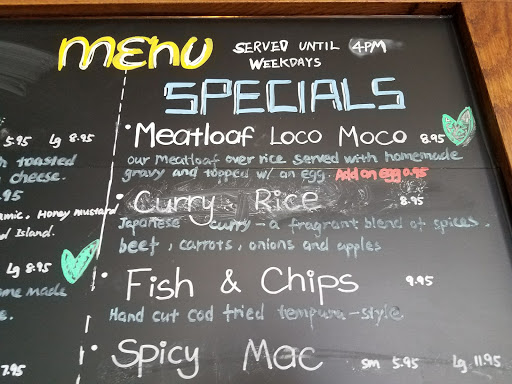 MENU SERVED UNTIL 4PM
WEEKDAYS
SPECIALS
5.95 Lg 8.95
toasted
cheese.
.95
Honey mustard
Island.
Lg 8.95
made
7.95
• Meatloaf Loco Moco 8.95
our Meatloaf over rice served with homemade
gravy and topped w/ an egg. Add an egg 0.95
• Curry Rice 8.95
Japanese curry - a fragrant blend of spices.
beef, carrots, onions and apples
• Fish & Chips 9.95
Hand cut cod fried tempura-style
• Spicy Mac sm 5.95 Lg. 11.95